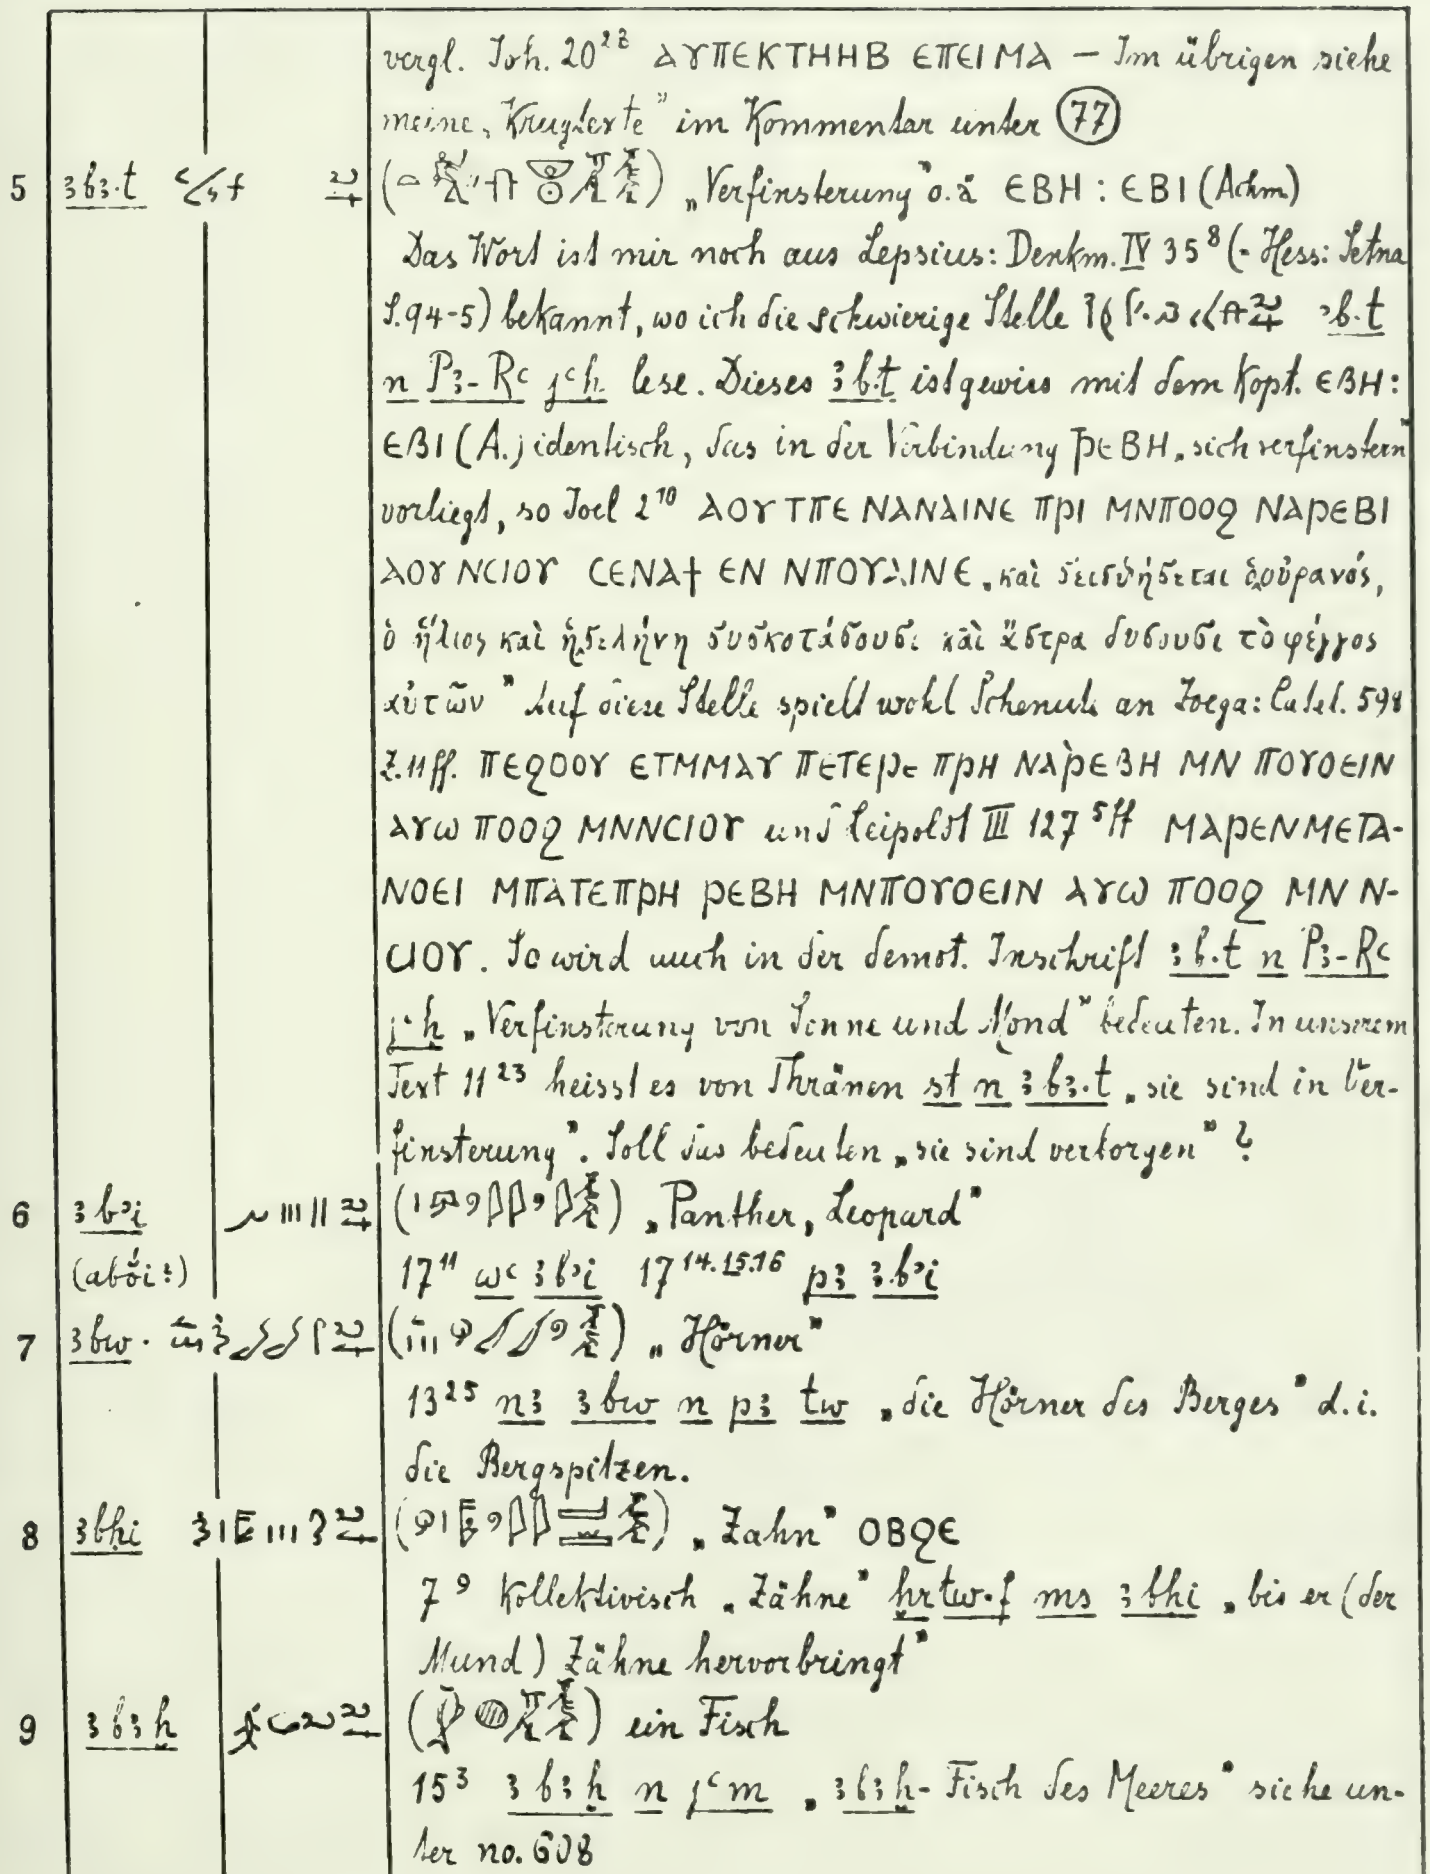 vergl. Joh. 20 ⲁⲩⲡⲉⲕⲧⲏⲏⲃ ⲉⲡⲉⲓⲙⲁ — Im übrigen siehe
meine „Krugtexte" im Kommentar unter (77)
5 ꜣbꜣ.t „Verfinsterung" o.ä ⲉⲃⲏ : ⲉⲃⲓ (Achm)
Das Wort ist mir noch aus Lepsius: Denkm. IV 35⁸ (- Hess: Setna
S. 94-5) bekannt, wo ich die schwierige Stelle ꜣb.t
n Pꜣ-Rꜥ jꜥḥ lese. Dieses ꜣb.t ist gewiss mit dem Kopt. ⲉⲃⲏ :
ⲉⲃⲓ (A.) identisch, das in der Verbindung ⲣⲉⲃⲏ „sich verfinstern"
vorliegt, so Joel 2¹⁰ ⲁⲟⲩ ⲧⲡⲉ ⲛⲁⲛⲁⲓⲛⲉ ⲡⲣⲓ ⲙⲛⲡⲟⲟϩ ⲛⲁⲣⲉⲃⲓ
ⲁⲟⲩ ⲛⲥⲓⲟⲩ ⲥⲉⲛⲁϯ ⲉⲛ ⲛⲡⲟⲩⲁⲓⲛⲉ „καὶ σεισθήσεται ὁ οὐρανός,
ὁ ἥλιος καὶ ἡ σελήνη συσκοτάσουσι καὶ ἄστρα δυσουσι τὸ φέγγος
αὐτῶν" Auf diese Stelle spielt wohl Schenute an Zoega: Catal. 598
Z. 11 ff. ⲡⲉϩⲟⲟⲩ ⲉⲧⲙⲙⲁⲩ ⲡⲉⲧⲉⲣⲉ ⲡⲣⲏ ⲛⲁⲣⲉⲃⲏ ⲙⲛ ⲡⲟⲩⲟⲉⲓⲛ
ⲁⲩⲱ ⲡⲟⲟϩ ⲙⲛⲛⲥⲓⲟⲩ und Leipoldt III 127 ⁵ᶠᶠ ⲙⲁⲣⲉⲛⲙⲉⲧⲁ-
ⲛⲟⲉⲓ ⲙⲡⲁⲧⲉⲡⲣⲏ ⲣⲉⲃⲏ ⲙⲛⲡⲟⲩⲟⲉⲓⲛ ⲁⲩⲱ ⲡⲟⲟϩ ⲙⲛ ⲛ-
ⲥⲓⲟⲩ. So wird auch in der demot. Inschrift ꜣb.t n Pꜣ-Rꜥ
jꜥḥ „Verfinsterung von Sonne und Mond" bedeuten. In unserem
Text 11²³ heisst es von Thränen st n ꜣbꜣ.t „sie sind in Ver-
finsterung". Soll das bedeuten „sie sind verborgen" ?
6 ꜣbʾi „Panther, Leopard"
(abŏ́i:) 17¹¹ wꜥ ꜣbʾi 17¹⁴·¹⁵·¹⁶ pꜣ ꜣbʾi
7 ꜣbw „Hörner"
13²⁵ nꜣ ꜣbw n pꜣ tw „die Hörner des Berges" d.i.
die Bergspitzen.
8 ꜣbḥi „Zahn" ⲟⲃϩⲉ
7⁹ Kollektivisch „Zähne" ḥrtw.f ms ꜣbḥi „bis er (der
Mund) Zähne hervorbringt"
9 ꜣbꜣḫ ein Fisch
15³ ꜣbꜣḫ n jꜥm „ꜣbꜣḫ-Fisch des Meeres" siehe un-
ter no. 608